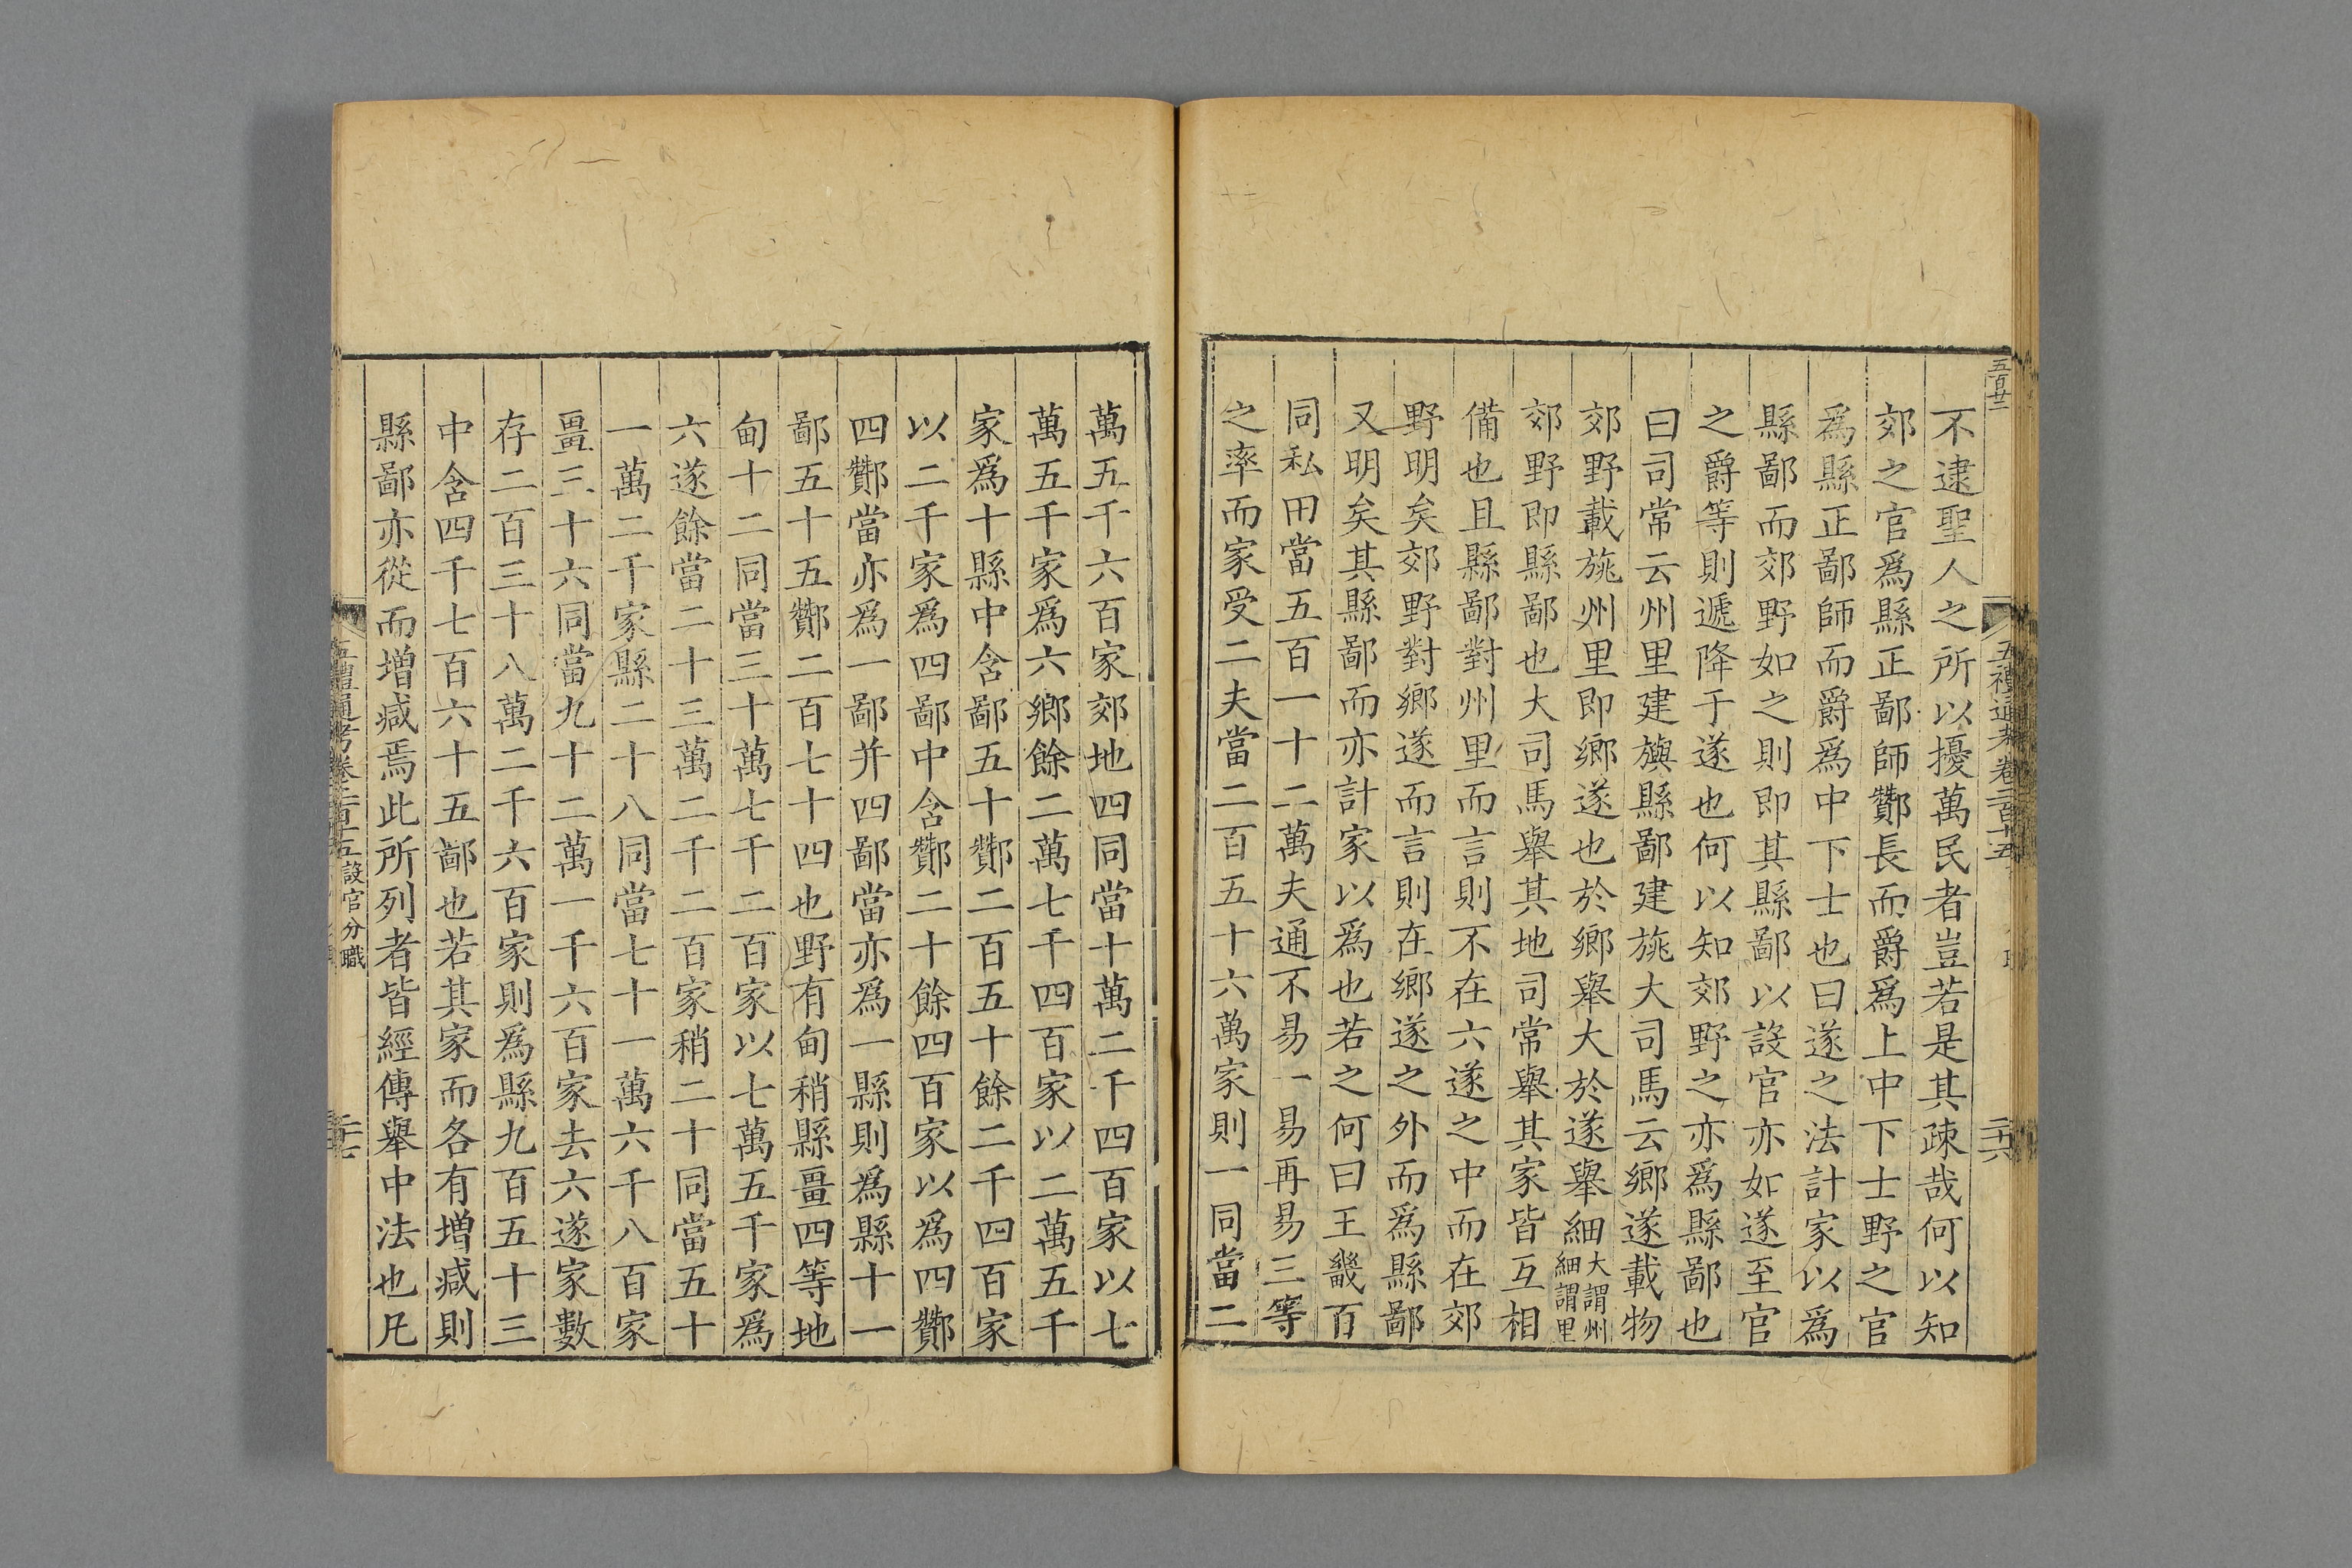 五百廿二
不逮聖人之所以擾萬民者豈若是其疎哉何以知
郊之官爲縣正鄙師酇長而爵爲上中下士野之官
爲縣正鄙師而爵爲中下士也曰遂之法計家以爲
縣鄙而郊野如之則即其縣鄙以設官亦如遂至官
之爵等則遞降于遂也何以知郊野之亦爲縣鄙也
曰司常云州里建旟縣鄙建旐大司馬云鄉遂載物
郊野載旐州里即鄉遂也於鄉舉大於遂舉細大謂州細謂里
郊野即縣鄙也大司馬舉其地司常舉其家皆互相
備也且縣鄙對州里而言則不在六遂之中而在郊
野明矣郊野對鄉遂而言則在鄉遂之外而爲縣鄙
又明矣其縣鄙而亦計家以爲也若之何曰王畿百
同私田當五百一十二萬夫通不易一易再易三等
之率而家受二夫當二百五十六萬家則一同當二
五禮通考卷二百十五
二十六
萬五千六百家郊地四同當十萬二千四百家以七
萬五千家爲六鄉餘二萬七千四百家以二萬五千
家爲十縣中含鄙五十酇二百五十餘二千四百家
以二千家爲四鄙中含酇二十餘四百家以爲四酇
四酇當亦爲一鄙并四鄙當亦爲一縣則爲縣十一
鄙五十五酇二百七十四也野有甸稍縣畺四等地
甸十二同當三十萬七千二百家以七萬五千家爲
六遂餘當二十三萬二千二百家稍二十同當五十
一萬二千家縣二十八同當七十一萬六千八百家
畺三十六同當九十二萬一千六百家去六遂家數
存二百三十八萬二千六百家則爲縣九百五十三
中含四千七百六十五鄙也若其家而各有增減則
縣鄙亦從而增減焉此所列者皆經傳舉中法也凡
五禮通考卷二百十五 設官分職
二十七